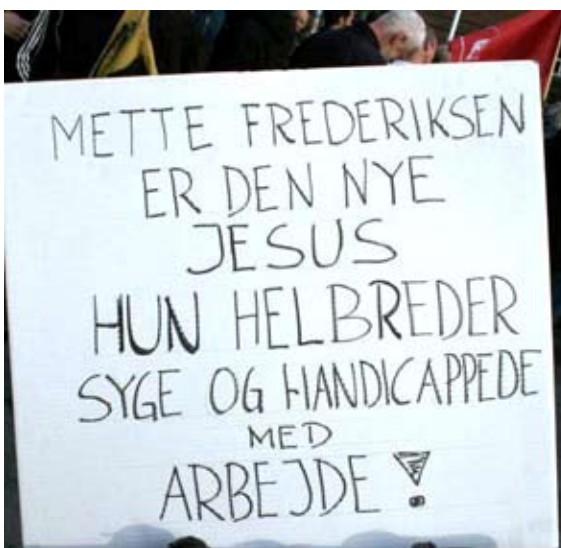 METTE FREDERIKSEN
ER DEN NYE
JESUS
HUN HELBREDER
SYGE OG HANDICAPPEDE
MED
ARBEJDE!